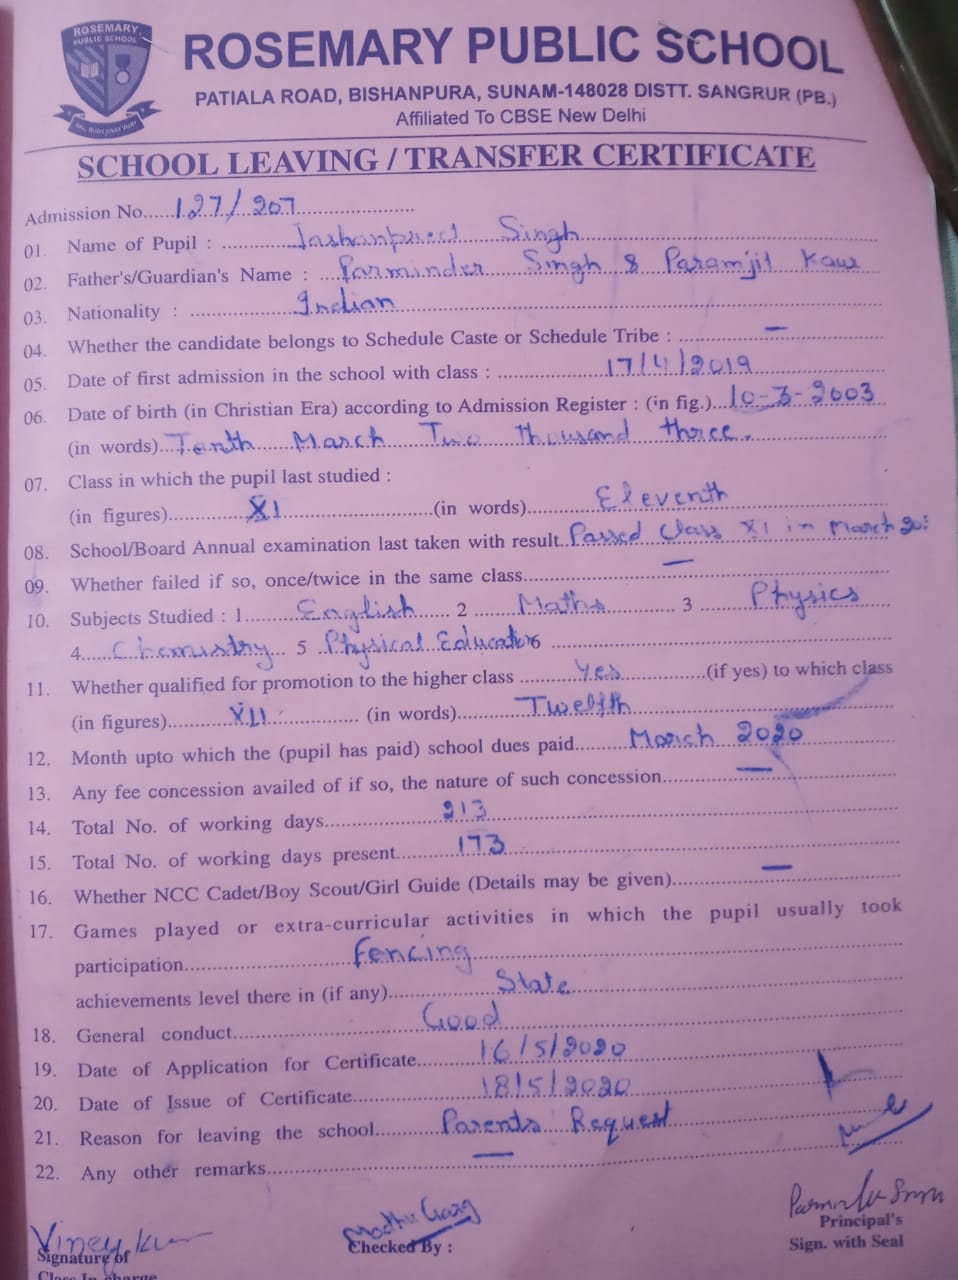 ROSEMARY
PUBLIC SCHOOL
ROSEMARY PUBLIC SCHOOL
PATIALA ROAD, BISHANPURA, SUNAM-148028 DISTT. SANGRUR (PB.)
Affiliated To CBSE New Delhi
SCHOOL LEAVING / TRANSFER CERTIFICATE
Admission No......127/207
01. Name of Pupil : Jashanpreet Singh
02. Father's/Guardian's Name : Parminder Singh & Paramjit Kaur
03. Nationality : Indian
04. Whether the candidate belongs to Schedule Caste or Schedule Tribe : —
05. Date of first admission in the school with class : 17/4/2019
06. Date of birth (in Christian Era) according to Admission Register : (in fig.)...10-3-2003
(in words)...Tenth March Two thousand three.
07. Class in which the pupil last studied :
(in figures)......XI......(in words)......Eleventh
08. School/Board Annual examination last taken with result...Passed Class XI in March
09. Whether failed if so, once/twice in the same class......—
10. Subjects Studied : 1......English...... 2 ......Maths...... 3 ......Physics
4......Chemistry... 5 ...Physical Education 6 ......
11. Whether qualified for promotion to the higher class ......Yes......(if yes) to which class
(in figures)......XII...... (in words)......Twelfth
12. Month upto which the (pupil has paid) school dues paid......March 2020
13. Any fee concession availed of if so, the nature of such concession......—
14. Total No. of working days......213
15. Total No. of working days present......173
16. Whether NCC Cadet/Boy Scout/Girl Guide (Details may be given)......—
17. Games played or extra-curricular activities in which the pupil usually took
participation......Fencing
achievements level there in (if any)......State
18. General conduct......Good
19. Date of Application for Certificate......16/5/2020
20. Date of Issue of Certificate......18/5/2020
21. Reason for leaving the school......Parents Request
22. Any other remarks......—
Viney
Madhu Garg
Signature of
Checked By :
Principal's
Sign. with Seal
Class In-charge